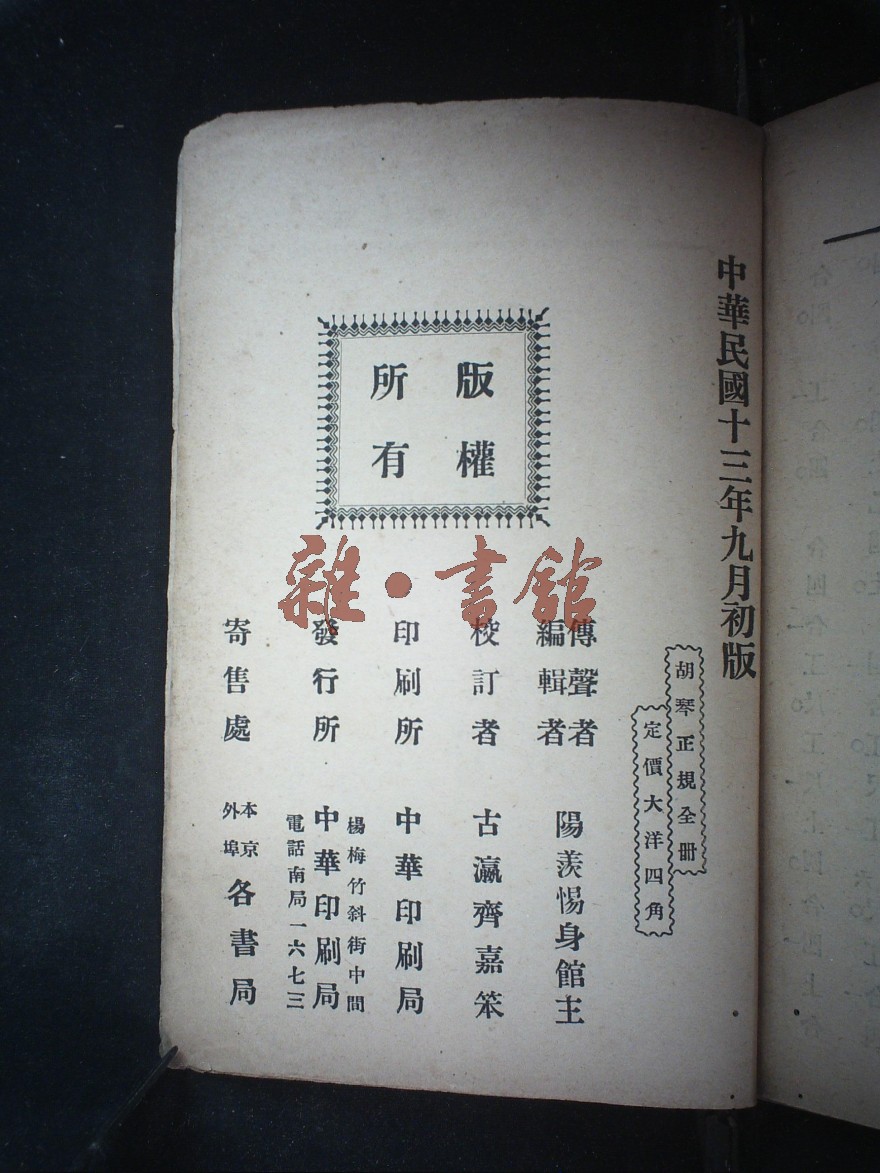 中華民國十三年九月初版
胡琴正規全册
定價大洋四角
版權
所有
雜·書館
傳聲者
編輯者
陽羨惕身館主
校訂者
古瀛齊嘉笨
印刷所
中華印刷局
發行所
楊梅竹斜街中間
中華印刷局
電話南局一六七三
寄售處
本京
外埠
各書局